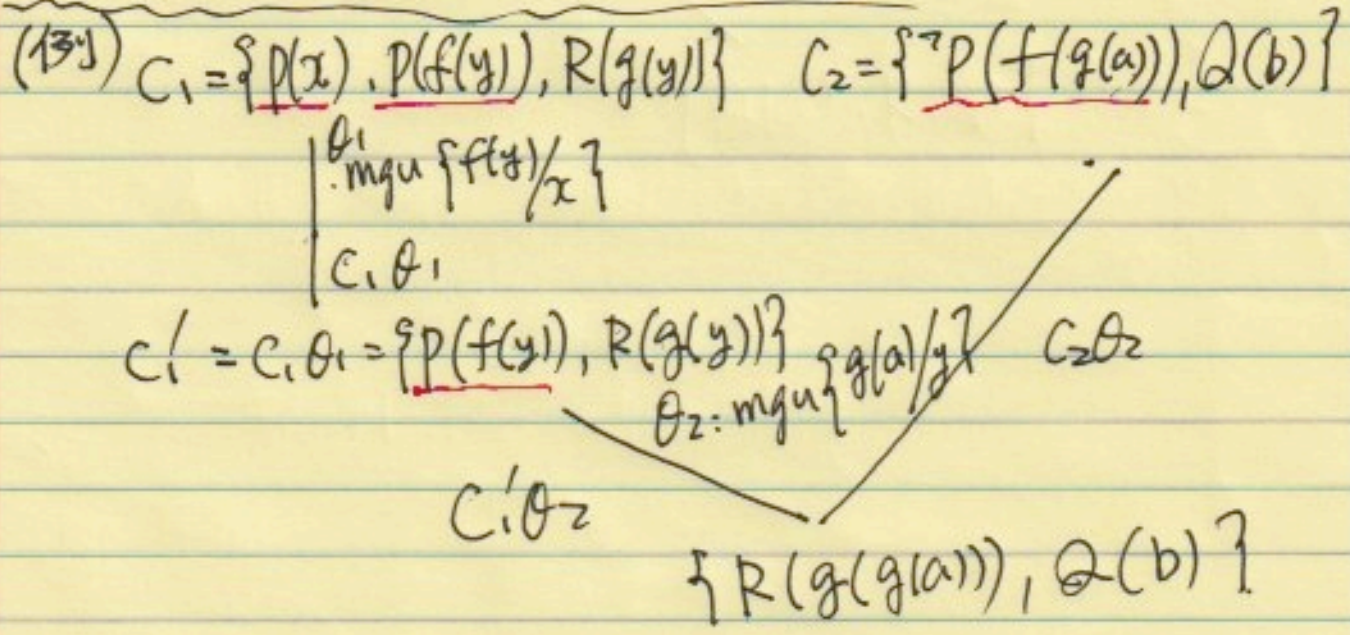 (例) C₁={P(x), P(f(y)), R(g(y))} C₂={¬P(f(g(a))), Q(b)}
θ₁
mgu {f(y)/x}
C₁θ₁
C₁' = C₁θ₁ = {P(f(y)), R(g(y))}
θ₂: mgu {g(a)/y} C₂θ₂
C₁'θ₂
{R(g(g(a))), Q(b)}